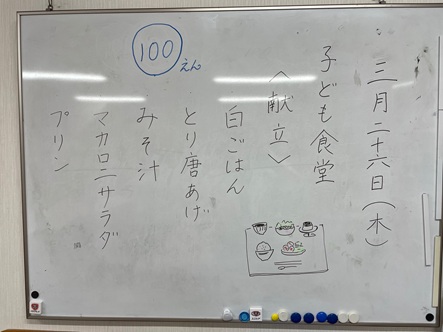 三月二十六日(木)
子ども食堂
〈献立〉
白ごはん
とり唐あげ
みそ汁
マカロニサラダ
プリン
100えん